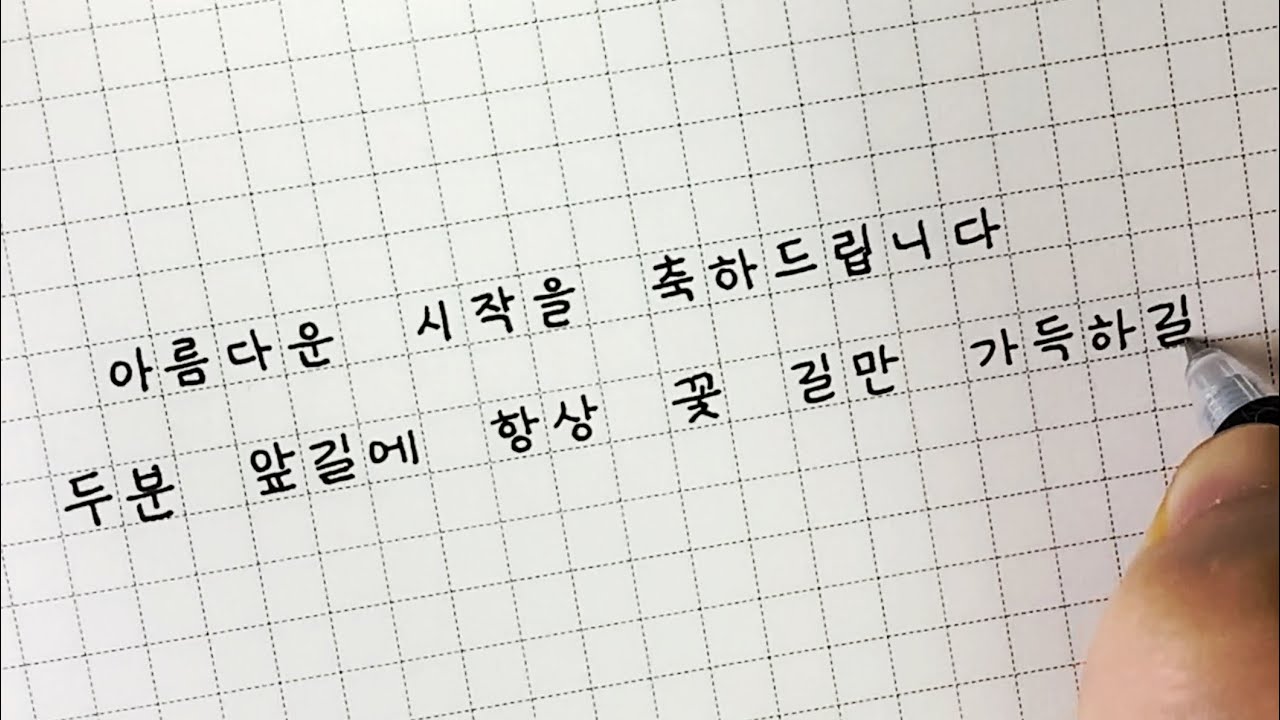 아름다운 시작을 축하드립니다
두분 앞길에 항상 꽃 길만 가득하길